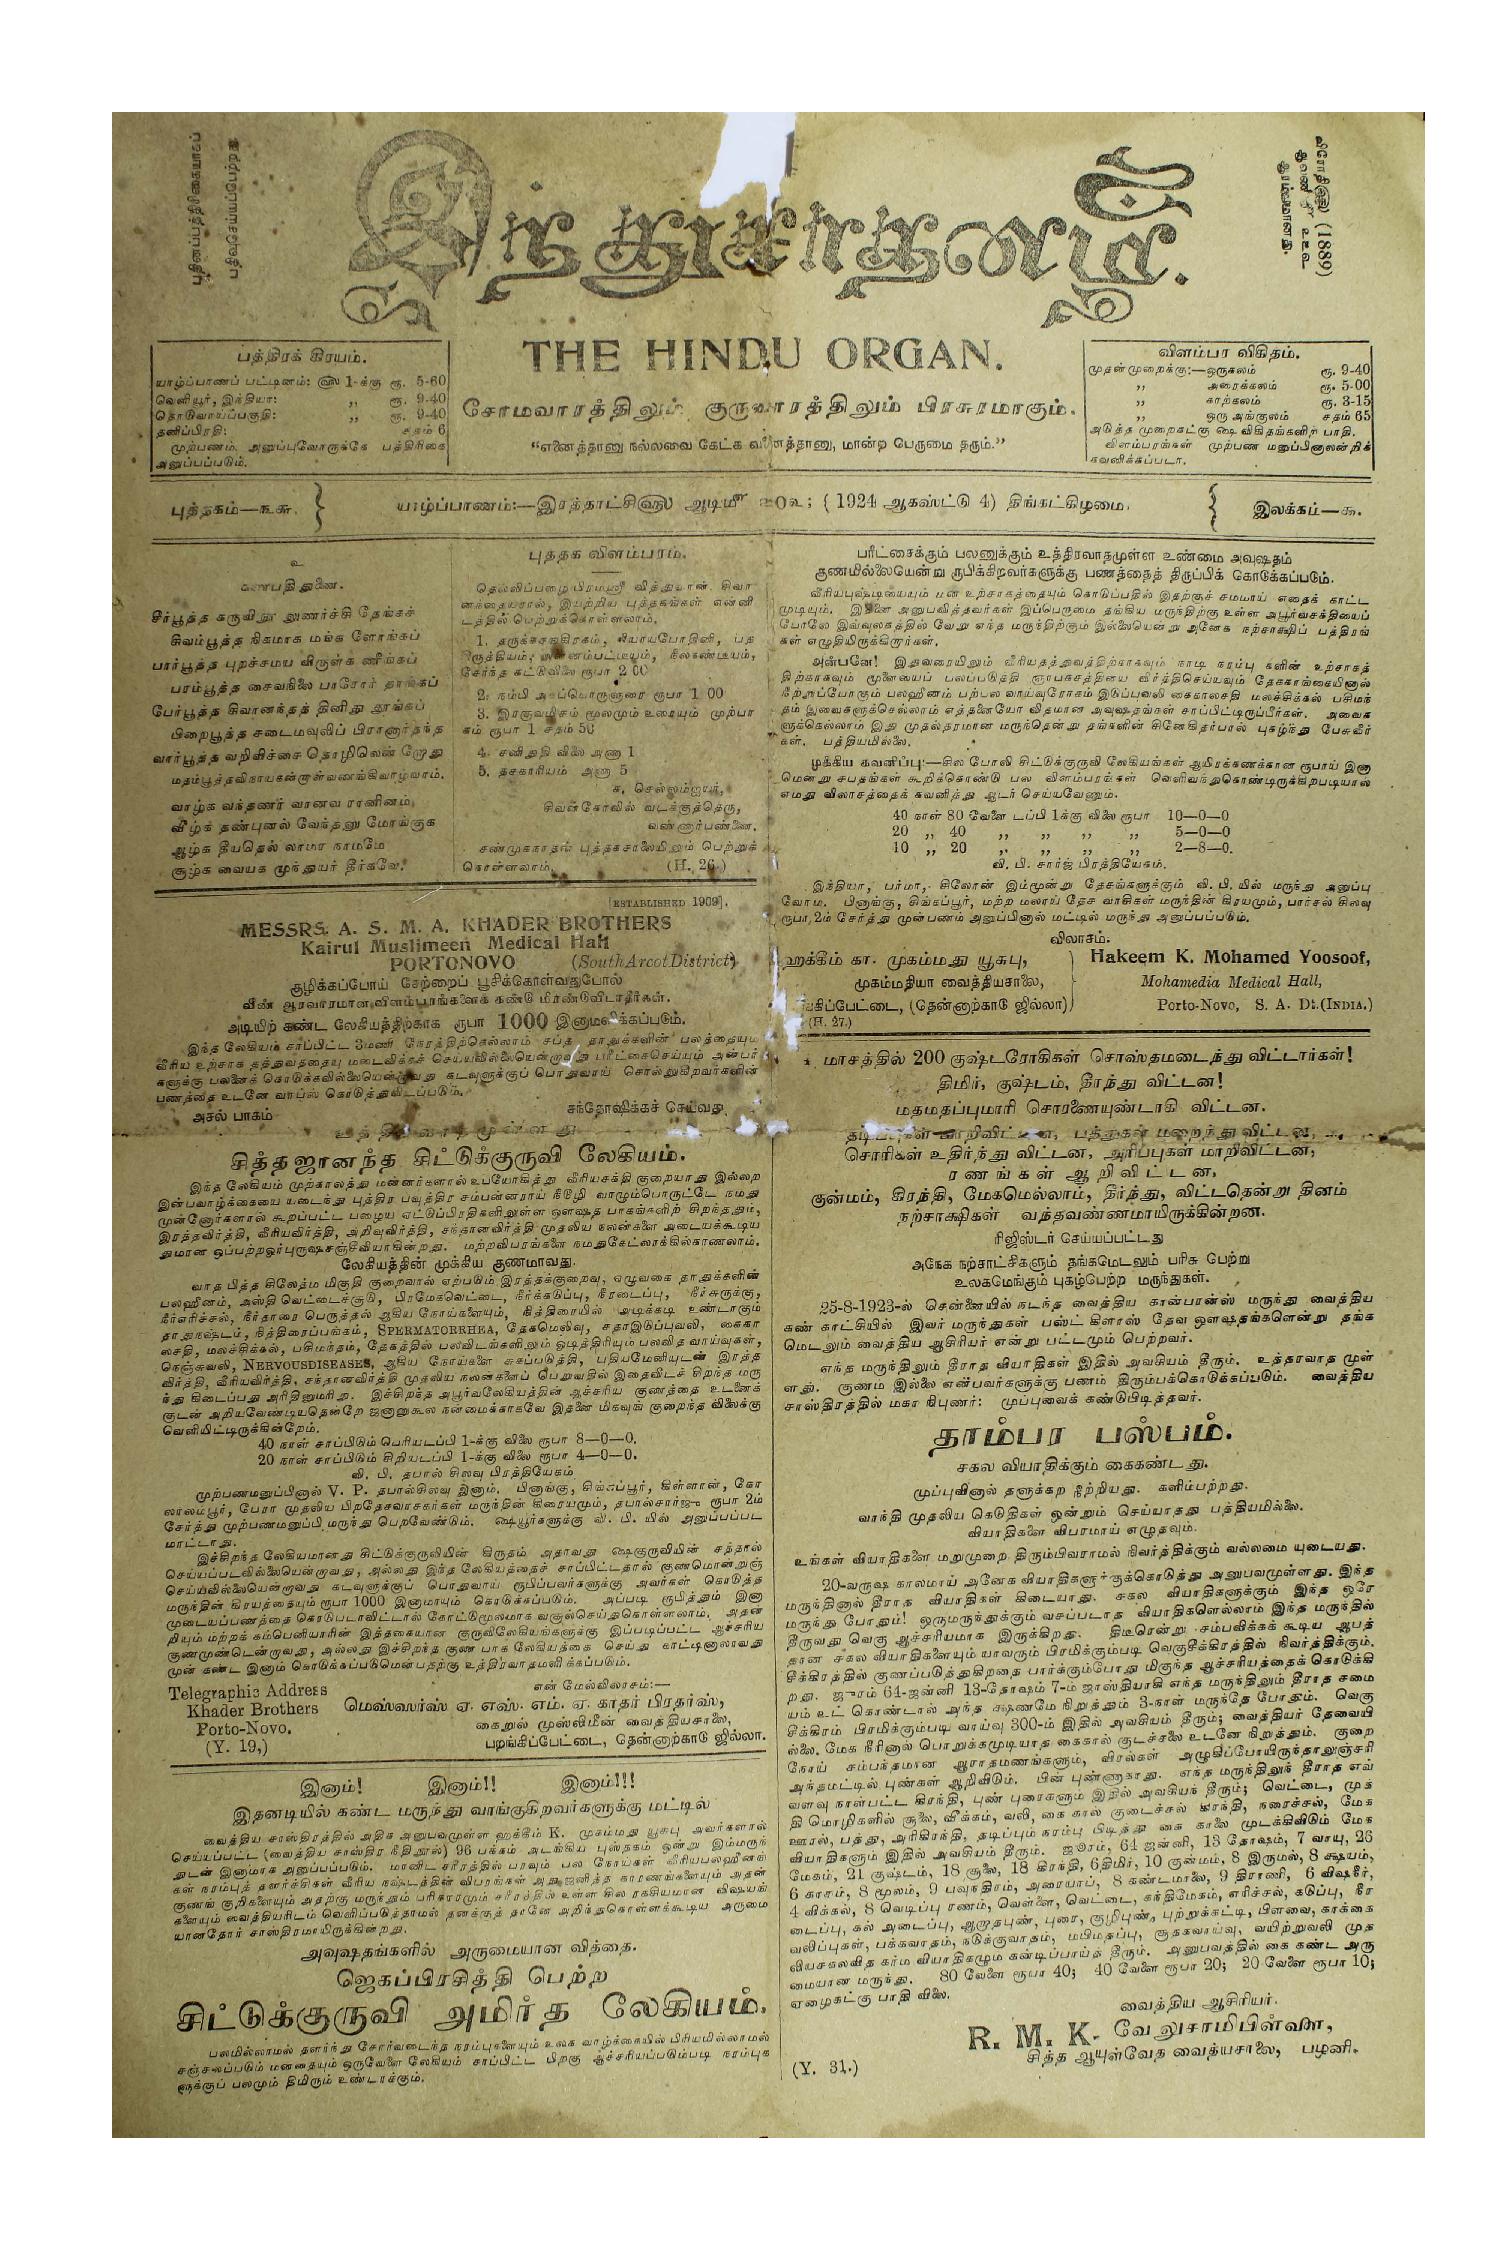 இந்துசாதனம்.
THE HINDU ORGAN.
சோமவாரத்திலும் குருவாரத்திலும் பிரசுரமாகும்.
“எனைத்தானு நல்லவை கேட்க வனைத்தானு, மான்ற பெருமை தரும்.”
பத்திரிகைப்பதிவு
(1889)
பத்திரக் கிரயம்.
யாழ்ப்பாணப் பட்டினம்: ௵ 1-க்கு ரூ. 5-60
வெளியூர், இந்தியா: ,, ரூ. 9-40
,, ரூ. 9-40
தனிப்பிரதி: சதம் 6
முற்பணம் அனுப்புவோருக்கே பத்திரிகை
அனுப்பப்படும்.
விளம்பர விகிதம்.
முதன்முறைக்கு:—ஒருகலம் ரூ. 9-40
,, அரைக்கலம் ரூ. 5-00
,, காற்கலம் ரூ. 3-15
,, ஒரு அங்குலம் சதம் 65
அடுத்த முறைகட்கு ஷை விகிதங்களிற் பாதி.
விளம்பரங்கள் முற்பண மனுப்பினாலன்றிக்
கவனிக்கப்படா.
புத்தகம்—௩௬.
யாழ்ப்பாணம்:—இரத்தாட்சி௵ ஆடிமீ ௨௦௳; (1924 ஆகஸ்ட்டு 4) திங்கட்கிழமை.
இலக்கம்—௯.
௨
கணபதி துணை.
சீர்பூத்த கருவிநூ லுணர்ச்சி தேங்கச்
சிவம்பூத்த நிகமாக மங்க ளோங்கப்
பார்பூத்த புறச்சமய விருள்க ணீங்கப்
பரம்பூத்த சைவநிலை பாரோர் தாங்கப்
பேர்பூத்த சிவானந்தத் தினிது தூங்கப்
பிறைபூத்த சடைமவுலிப் பிரானார்தந்த
வார்பூத்த வறிவிச்சை தொழிலென் றோது
மதம்பூத்தவிநாயகன்றாள்வணங்கிவாழ்வாம்.
வாழ்க வந்தணர் வானவ ரானினம்
வீழ்க தண்புனல் வேந்தனு மோங்குக
ஆழ்க தீயதெல் லாமர நாமமே
சூழ்க வையக முந்துயர் தீர்கவே.
புத்தக விளம்பரம்.
தெல்லிப்பழை பிரமஸ்ரீ வித்துவான். சிவா
னந்தையரால், இயற்றிய புத்தகங்கள் என்னி
டத்தில் பெற்றுக்கொள்ளலாம்.
1. தருக்கசங்கிரகம், நியாயபோதினி, பத
கிருத்தியம்; அன்னம்பட்டீயம், நீலகண்டீயம்,
சேர்ந்த கட்டுவிலை ரூபா 2 00
2. நம்பி அகப்பொருளுரை ரூபா 1 00
3. இரகுவமிசம் மூலமும் உரையும் முற்பா
கம் ரூபா 1 சதம் 50
4. சனிதுதி விலை அணா 1
5. தசகாரியம் அணா 5
ச. செல்லம்ஐயர்,
சிவன்கோவில் வடக்குத்தெரு,
வண்ணார்பண்ணை.
சண்முகநாதன் புத்தகசாலையிலும் பெற்றுக்
கொள்ளலாம். (H. 26.)
[ESTABLISHED 1909].
MESSRS. A. S. M. A. KHADER BROTHERS
Kairul Muslimeen Medical Hall
PORTONOVO (South Arcot District)
குழிக்கப்போய் சேற்றைப் பூசிக்கொள்வதுபோல்
வீண் ஆரவாரமான விளம்பரங்களைக் கண்டு மிரண்டுவிடாதீர்கள்.
அடியிற் கண்ட லேகியத்திற்காக ரூபா 1000 இனாமளிக்கப்படும்.
இந்த லேகியம் சாப்பிட்ட 3மணி நேரத்திற்கெல்லாம் சப்த தாதுக்களின் பலத்தையும்
வீரிய உற்சாக தத்துவத்தையு மடைவிக்கச் செய்யவில்லையென்றாவது பரீட்சைசெய்யும் அன்பர்
களுக்கு பலனைக் கொடுக்கவில்லையென்றாவது கடவுளுக்குப் பொதுவாய் சொல்லுகிறவர்களின்
பணத்தை உடனே வாபஸ் கொடுத்துவிடப்படும்.
அசல் பாகம் சந்தோஷிக்கச் செய்வது
உத்திரவாதமுள்ளது
சித்தஜானந்த சிட்டுக்குருவி லேகியம்.
இந்த லேகியம் முற்காலத்து மன்னர்களால் உபயோகித்து வீரியசக்தி குறையாது இல்லற
இன்பவாழ்க்கையை யடைந்து புத்திர பவுத்திர சம்பன்னராய் நீடூழி வாழும்பொருட்டே நமது
முன்னோர்களால் கூறப்பட்ட பழைய ஏட்டுப்பிரதிகளிலுள்ள ஔஷத பாகங்களிற் சிறந்ததும்,
இரத்தவிர்த்தி, வீரியவிர்த்தி, அறிவுவிர்த்தி, சந்தானவிர்த்தி முதலிய நலன்களை அடையக்கூடிய
துமான ஒப்பற்றஓர்புருஷசஞ்சீவியாகின்றது. மற்றவிபரங்களை நமதுகேட்லாக்கில்காணலாம்.
லேகியத்தின் முக்கிய குணமாவது.
வாத பித்த சிலேத்ம மிகுதி குறைவால் ஏற்படும் இரத்தக்குறைவு, எழுவகை தாதுக்களின்
பலஹீனம், அஸ்தி வெட்டைச்சூடு, பிரமேகவெட்டை, நீர்க்கடுப்பு, நீரடைப்பு, நீர்சுருக்கு,
நீர்எரிச்சல், நீர்தாரை பெருத்தல் ஆகிய நோய்களையும், நித்திரையில் அடிக்கடி உண்டாகும்
தாதுநஷ்டம், நித்திரைப்பங்கம், SPERMATORRHEA, தேகமெலிவு, சதாஇடுப்புவலி, கைகா
லசதி, மலச்சிக்கல், பசிமந்தம், தேகத்தில் பலவிடங்களிலும் ஓடித்திரியும் பலவித வாய்வுகள்,
நெஞ்சுவலி, NERVOUSDISEASES, ஆகிய நோய்களை சுகப்படுத்தி, புதியமேனியுடன் இரத்த
விர்த்தி, வீரியவிர்த்தி, சந்தானவிர்த்தி முதலிய நலன்களைப் பெறுவதில் இதைவிடச் சிறந்த மரு
ந்து கிடைப்பது அரிதினுமரிது. இச்சிறந்த அபூர்வலேகியத்தின் ஆச்சரிய குணத்தை உடனைக்
குடன் அறியவேண்டியதென்றே ஜனானுகூல நன்மைக்காகவே இதனை மிகவுங் குறைந்த விலைக்கு
வெளியிட்டிருக்கின்றேம்.
40 நாள் சாப்பிடும் பெரியடப்பி 1-க்கு விலை ரூபா 8—0—0.
20 நாள் சாப்பிடும் சிறியடப்பி 1-க்கு விலை ரூபா 4—0—0.
வி. பி. தபால் சிலவு பிரத்தியேகம்
முற்பணமனுப்பினால் V. P. தபால்சிலவு இனாம். பினாங்கு, சிங்கப்பூர், கிள்ளான், கோ
லாலம்பூர், பேரா முதலிய பிறதேசவாசகர்கள் மருந்தின் கிரையமும், தபால்சார்ஜு ரூபா 2ம்
சேர்த்து முற்பணமனுப்பி மருந்து பெறவேண்டும். ஷையூர்களுக்கு வி. பி. யில் அனுப்பப்பட
மாட்டாது.
இச்சிறந்த லேகியமானது சிட்டுக்குருவியின் கிருதம் அதாவது ஷைகுருவியின் சத்தால்
செய்யப்படவில்லையென்றாவது, அல்லது இந்த லேகியத்தைச் சாப்பிட்டதால் குணமொன்றுஞ்
செய்யவில்லையென்றாவது கடவுளுக்குப் பொதுவாய் ரூபிப்பவர்களுக்கு அவர்கள் கொடுத்த
மருந்தின் கிரயத்தையும் ரூபா 1000 இனாமாயும் கொடுக்கப்படும். அப்படி ரூபித்தும் இனா
முடையப்பணத்தை கொடுபடாவிட்டால் கோர்ட்டுமூலமாக வசூல்செய்துகொள்ளலாம். அதன்
றியும் மற்றக் கம்பெனியாரின் இத்தகையான குருவிலேகியங்களுக்கு இப்படிப்பட்ட ஆச்சரிய
குணமுண்டென்றாவது, அல்லது இச்சிறந்த குண பாக லேகியத்தை செய்து காட்டினாலாவது
முன் கண்ட இனாம் கொடுக்கப்படுமென்பதற்கு உத்திரவாதமளிக்கப்படும்.
Telegraphic Address
Khader Brothers
Porto-Novo.
(Y. 19,)
என் மேல்விலாசம்:—
மெஸ்ஸர்ஸ் ஏ. எஸ். எம். ஏ. காதர் பிரதர்ஸ்,
கைறுல் முஸ்லிமீன் வைத்தியசாலை,
பறங்கிப்பேட்டை, தென்னாற்காடு ஜில்லா.
இனாம்! இனாம்!! இனாம்!!!
இதனடியில் கண்ட மருந்து வாங்குகிறவர்களுக்கு மட்டில்
வைத்திய சாஸ்திரத்தில் அதிக அனுபவமுள்ள ஹக்கீம் K. முகம்மது யூசுபு அவர்களால்
செய்யப்பட்ட (வைத்திய சாஸ்திர நீதிநூல்) 96 பக்கம் அடங்கிய புஸ்தகம் ஒன்று இம்மருந்
துடன் இனாமாக அனுப்பப்படும். மானிட சரீரத்தில் பரவும் பல நோய்கள் வீரியபலஹீனங்
கள் நரம்புத் தளர்ச்சிகள் வீரிய நஷ்டத்தின் விபரங்கள் அதுஜனித்த காரணங்களையும் அதன்
குணங் குறிகளையும் அதற்கு மருந்தும் பரிகாரமும் சரீரத்தில் உள்ள சில ரகசியமான விஷயங்
களையும் வைத்தியரிடம் வெளிப்படுத்தாமல் தனக்குத் தானே அறிந்துகொள்ளக்கூடிய அருமை
யானதோர் சாஸ்திரமாயிருக்கின்றது.
அவுஷதங்களில் அருமையான வித்தை.
ஜெகப்பிரசித்தி பெற்ற
சிட்டுக்குருவி அமிர்த லேகியம்.
பலமில்லாமல் தளர்ந்து சோர்வடைந்த நரம்புகளையும் உலக வாழ்க்கையில் பிரியமில்லாமல்
சஞ்சலப்படும் மனதையும் ஒருவேளை லேகியம் சாப்பிட்ட பிறகு ஆச்சரியப்படும்படி நரம்புக
ளுக்குப் பலமும் திமிரும் உண்டாக்கும்.
பரீட்சைக்கும் பலனுக்கும் உத்திரவாதமுள்ள உண்மை அவுஷதம்
குணமில்லையென்று ருபிக்கிறவர்களுக்கு பணத்தைத் திருப்பிக் கொடுக்கப்படும்.
வீரியபுஷ்டியையும் மன உற்சாகத்தையும் கொடுப்பதில் இதற்குச் சமமாய் எதைக் காட்ட
முடியும். இதனை அனுபவித்தவர்கள் இப்பெருமை தங்கிய மருந்திற்கு உள்ள அபூர்வசக்தியைப்
போலே இவ்வுலகத்தில் வேறு எந்த மருந்திற்கும் இல்லையென்று அனேக நற்சாக்ஷிப் பத்திரங்
கள் எழுதியிருக்கிறார்கள்.
அன்பனே! இதுவரையிலும் வீரியதத்துவத்திற்காகவும் நாடி நரம்பு களின் உற்சாகத்
திற்காகவும் மூளையைப் பலப்படுத்தி ஞாபகசத்தியை விர்த்திசெய்யவும் தேககாங்கையினால்
நீற்றுப்போகும் பலஹீனம் பற்பல வாய்வுரோகம் இடுப்புவலி கைகாலசதி மலச்சிக்கல் பசிமந்
தம் இவைகளுக்செல்லாம் எத்தனையோ விதமான அவுஷதங்கள் சாப்பிட்டிருப்பீர்கள். அவைக
ளுக்கெல்லாம் இது முதல்தரமான மருந்தென்று தங்களின் சினேகிதர்பால் புகழ்ந்து பேசுவீர்
கள். பத்தியமில்லை.
முக்கிய கவனிப்பு:—சில போலி சிட்டுக்குருவி லேகியங்கள் ஆயிரக்கணக்கான ரூபாய் இனா
மெனறு சபதங்கள் கூறிக்கொண்டு பல விளம்பரங்கள் வெளிவந்துகொண்டிருக்கிறபடியால்
எமது விலாசத்தைக் கவனித்து ஆடர் செய்யவேணும்.
40 நாள் 80 வேளை டப்பி 1க்கு விலை ரூபா 10—0—0
20 ,, 40 ,, ,, ,, ,, 5—0—0
10 ,, 20 ,, ,, ,, ,, 2—8—0.
வி. பி. சார்ஜ் பிரத்தியேகம்.
இந்தியா, பர்மா, சிலோன் இம்மூன்று தேசங்களுக்கும் வி. பி. யில் மருந்து அனுப்பு
வோம். பினாங்கு, சிங்கப்பூர், மற்ற மலாய் தேச வாசிகள் மருந்தின் கிரயமும், பார்சல் சிலவு
ரூபா 2ம் சேர்த்து முன்பணம் அனுப்பினால் மட்டில் மருந்து அனுப்பப்படும்.
விலாசம்.
ஹக்கீம் கா. முகம்மது யூசுபு,
முகம்மதியா வைத்தியசாலை,
பரங்கிப்பேட்டை, (தென்னாற்காடு ஜில்லா)
(H. 27.)
Hakeem K. Mohamed Yoosoof,
Mohamedia Medical Hall,
Porto-Novo, S. A. Dt.(INDIA.)
மாசத்தில் 200 குஷ்டரோகிகள் சொஸ்தமடைந்து விட்டார்கள்!
திமிர், குஷ்டம், தீர்ந்து விட்டன!
மதமதப்புமாரி சொரணையுண்டாகி விட்டன.
தடிப்புகள் மாறிவிட்டன, பத்துகள் மறைந்து விட்டன,
சொரிகள் உதிர்ந்து விட்டன, அரிப்புகள் மாறிவிட்டன,
ரணங்கள் ஆறிவிட்டன,
குன்மம், கிரந்தி, மேகமெல்லாம், தீர்ந்து, விட்டதென்று தினம்
நற்சாக்ஷிகள் வந்தவண்ணமாயிருக்கின்றன.
ரிஜிஸ்டர் செய்யப்பட்டது
அநேக நற்சாட்சிகளும் தங்கமெடலும் பரிசு பெற்று
உலகமெங்கும் புகழ்பெற்ற மருந்துகள்.
25-8-1923-ல் சென்னையில் நடந்த வைத்திய கான்பரன்ஸ் மருந்து வைத்திய
கண் காட்சியில் இவர் மருந்துகள் பஸ்ட் கிளாஸ் தேவ ஔஷதங்களென்று தங்க
மெடலும் வைத்திய ஆசிரியர் என்று பட்டமும் பெற்றவர்.
எந்த மருந்திலும் தீராத வியாதிகள் இதில் அவசியம் தீரும். உத்தரவாத முள்
ளது. குணம் இல்லை என்பவர்களுக்கு பணம் திரும்பக்கொடுக்கப்படும். வைத்திய
சாஸ்திரத்தில் மகா நிபுணர்: முப்புவைக் கண்டுபிடித்தவர்.
தாம்பர பஸ்பம்.
சகல வியாதிக்கும் கைகண்டது.
முப்புவினால் தளுக்கற நீற்றியது. களிம்பற்றது.
வாந்தி முதலிய கெடுதிகள் ஒன்றும் செய்யாதது பத்தியமில்லை.
வியாதிகளை விபரமாய் எழுதவும்.
உங்கள் வியாதிகளை மறுமுறை திரும்பிவராமல் நிவர்த்திக்கும் வல்லமை யுடையது.
20-வருஷ காலமாய் அனேக வியாதிகளுக்குக்கொடுத்து அனுபவமுள்ளது. இந்த
மருந்தினால் தீராத வியாதிகள் கிடையாது. சகல வியாதிகளுக்கும் இந்த ஒரே
மருந்து போதும்! ஒருமருந்துக்கும் வசப்படாத வியாதிகளெல்லாம் இந்த மருந்தில்
தீருவது வெகு ஆச்சரியமாக இருக்கிறது. திடீரென்று சம்பவிக்கக் கூடிய ஆபத்
தான சகல வியாதிகளையும் யாவரும் பிரமிக்கும்படி வெகுசீக்கிரத்தில் நிவர்த்திக்கும்.
சீக்கிரத்தில் குணப்படுத்துகிறதை பார்க்கும்போது மிகுந்த ஆச்சரியத்தைக் கொடுக்கி
றது. ஜுரம் 64-ஜன்னி 13-தோஷம் 7-ம் ஜாஸ்தியாகி எந்த மருந்திலும் தீராத சமை
யம் உட் கொண்டால் அந்த க்ஷணமே நிறுத்தும் 3-நாள் மருந்தே போதும். வெகு
சிக்கிரம் பிரமிக்கும்படி வாய்வு 300-ம் இதில் அவசியம் தீரும்; வைத்தியர் தேவையி
ல்லை. மேக நீரினால் பொறுக்கமுடியாத கைகால் குடச்சலை உடனே நிறுத்தும். குறை
நோய் சம்பந்தமான ஆராதரணங்களும், விரல்கள் அழுகிப்போயிருந்தாலுஞ்சரி
அந்தமட்டில் புண்கள் ஆறிவிடும். பின் புண்ணாகாது. எந்த மருந்திலுந் தீராத எவ்
வளவு நாள்பட்ட கிரந்தி, புண் புரைகளும் இதில் அவசியந் தீரும்; வெட்டை, முத்
தி மொழிகளில் சூலை, வீக்கம், வலி, கை கால் குடைச்சல் கரந்தி, நரைச்சல், மேக
ஊரல், பத்து, அரிகிரந்தி, தடிப்பும் நரம்பு பிடித்து கை காலை முடக்கிவிடும் மேக
வியாதிகளும் இதில் அவசியம் தீரும். ஜூரம், 64 ஜன்னி, 13 தோஷம், 7 வாயு, 26
மேகம், 21 குஷ்டம், 18 சூலை, 18 கிரந்தி, 6திமிர், 10 குன்மம், 8 இருமல், 8 க்ஷயம்,
6 காசம், 8 மூலம், 9 பவுந்திரம், அரையாப், 8 கண்டமாலை, 9 திராணி, 6 விஷசீர்,
4 விக்கல், 8 வெடிப்பு ரணம், வெள்ளை, வெட்டை, கந்திமேகம், எரிச்சல், கடுப்பு, நீர
டைப்பு, கல் அடைப்பு, ஆறாதபுண், புரை, குழிபுண், புற்றுக்கட்டி, பிளவை, காக்கை
வலிப்புகள், பக்கவாதம், நடுக்குவாதம், மயிமதப்பு, சூதகவாய்வு, வயிற்றுவலி முத
லியசகலவித கர்ம வியாதிகளும் கன்டிப்பாய்த் தீரும். அனுபவத்தில் கை கண்ட அரு
மையான மருந்து. 80 வேளை ரூபா 40; 40 வேளை ரூபா 20; 20 வேளை ரூபா 10;
ஏழைகட்கு பாதி விலை.
வைத்திய ஆசிரியர்.
R. M. K. வேலுசாமிபிள்ளை,
சித்த ஆயுள்வேத வைத்யசாலை, பழனி.
(Y. 31.)